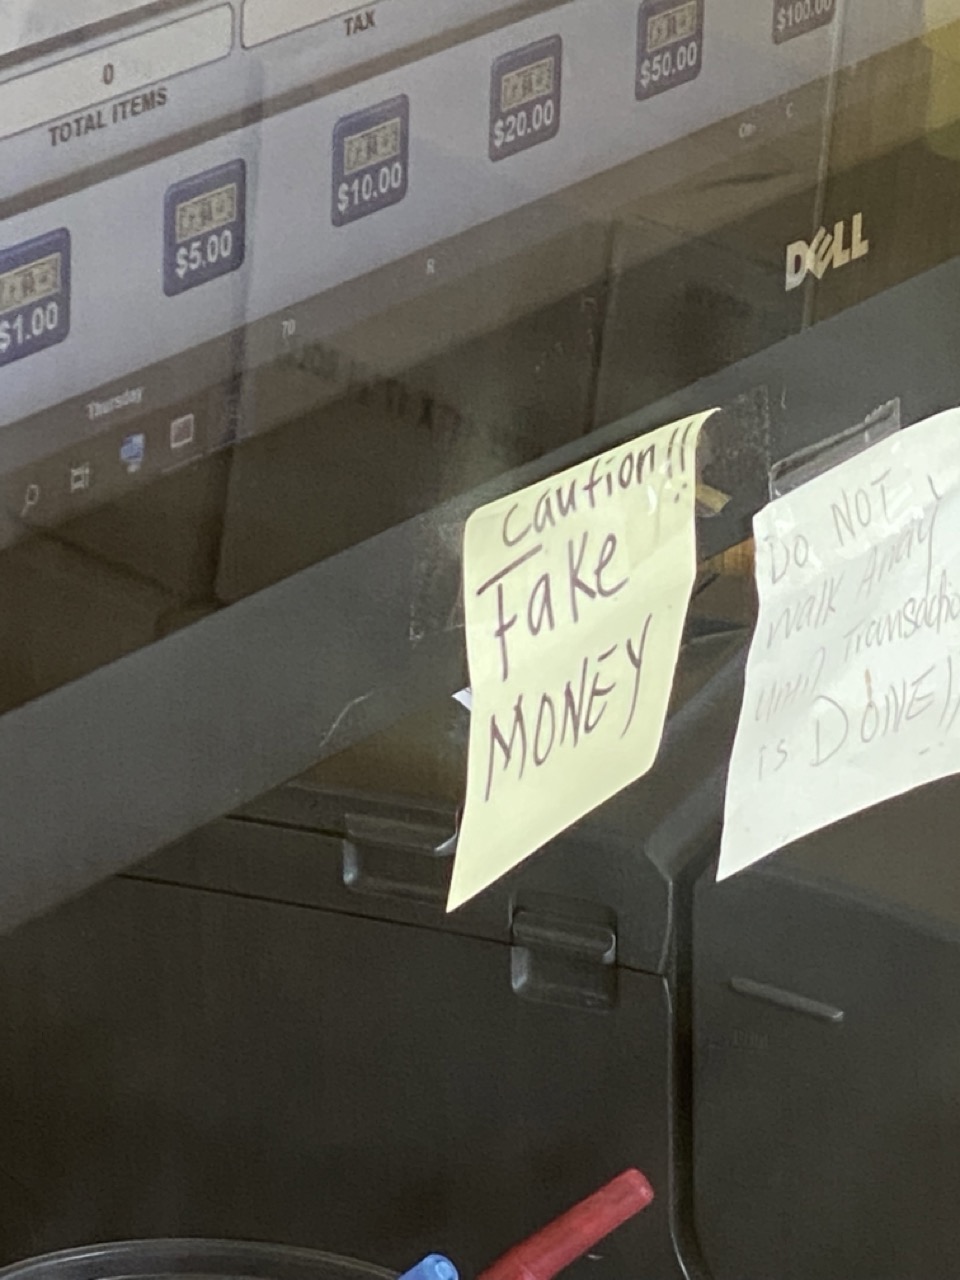 0
TOTAL ITEMS
TAX
$1.00
$5.00
$10.00
$20.00
$50.00
$100.00
Thursday
DELL
Caution!!
Fake
MONEY
Do NOT
walk Away
until Transaction
is DONE!!